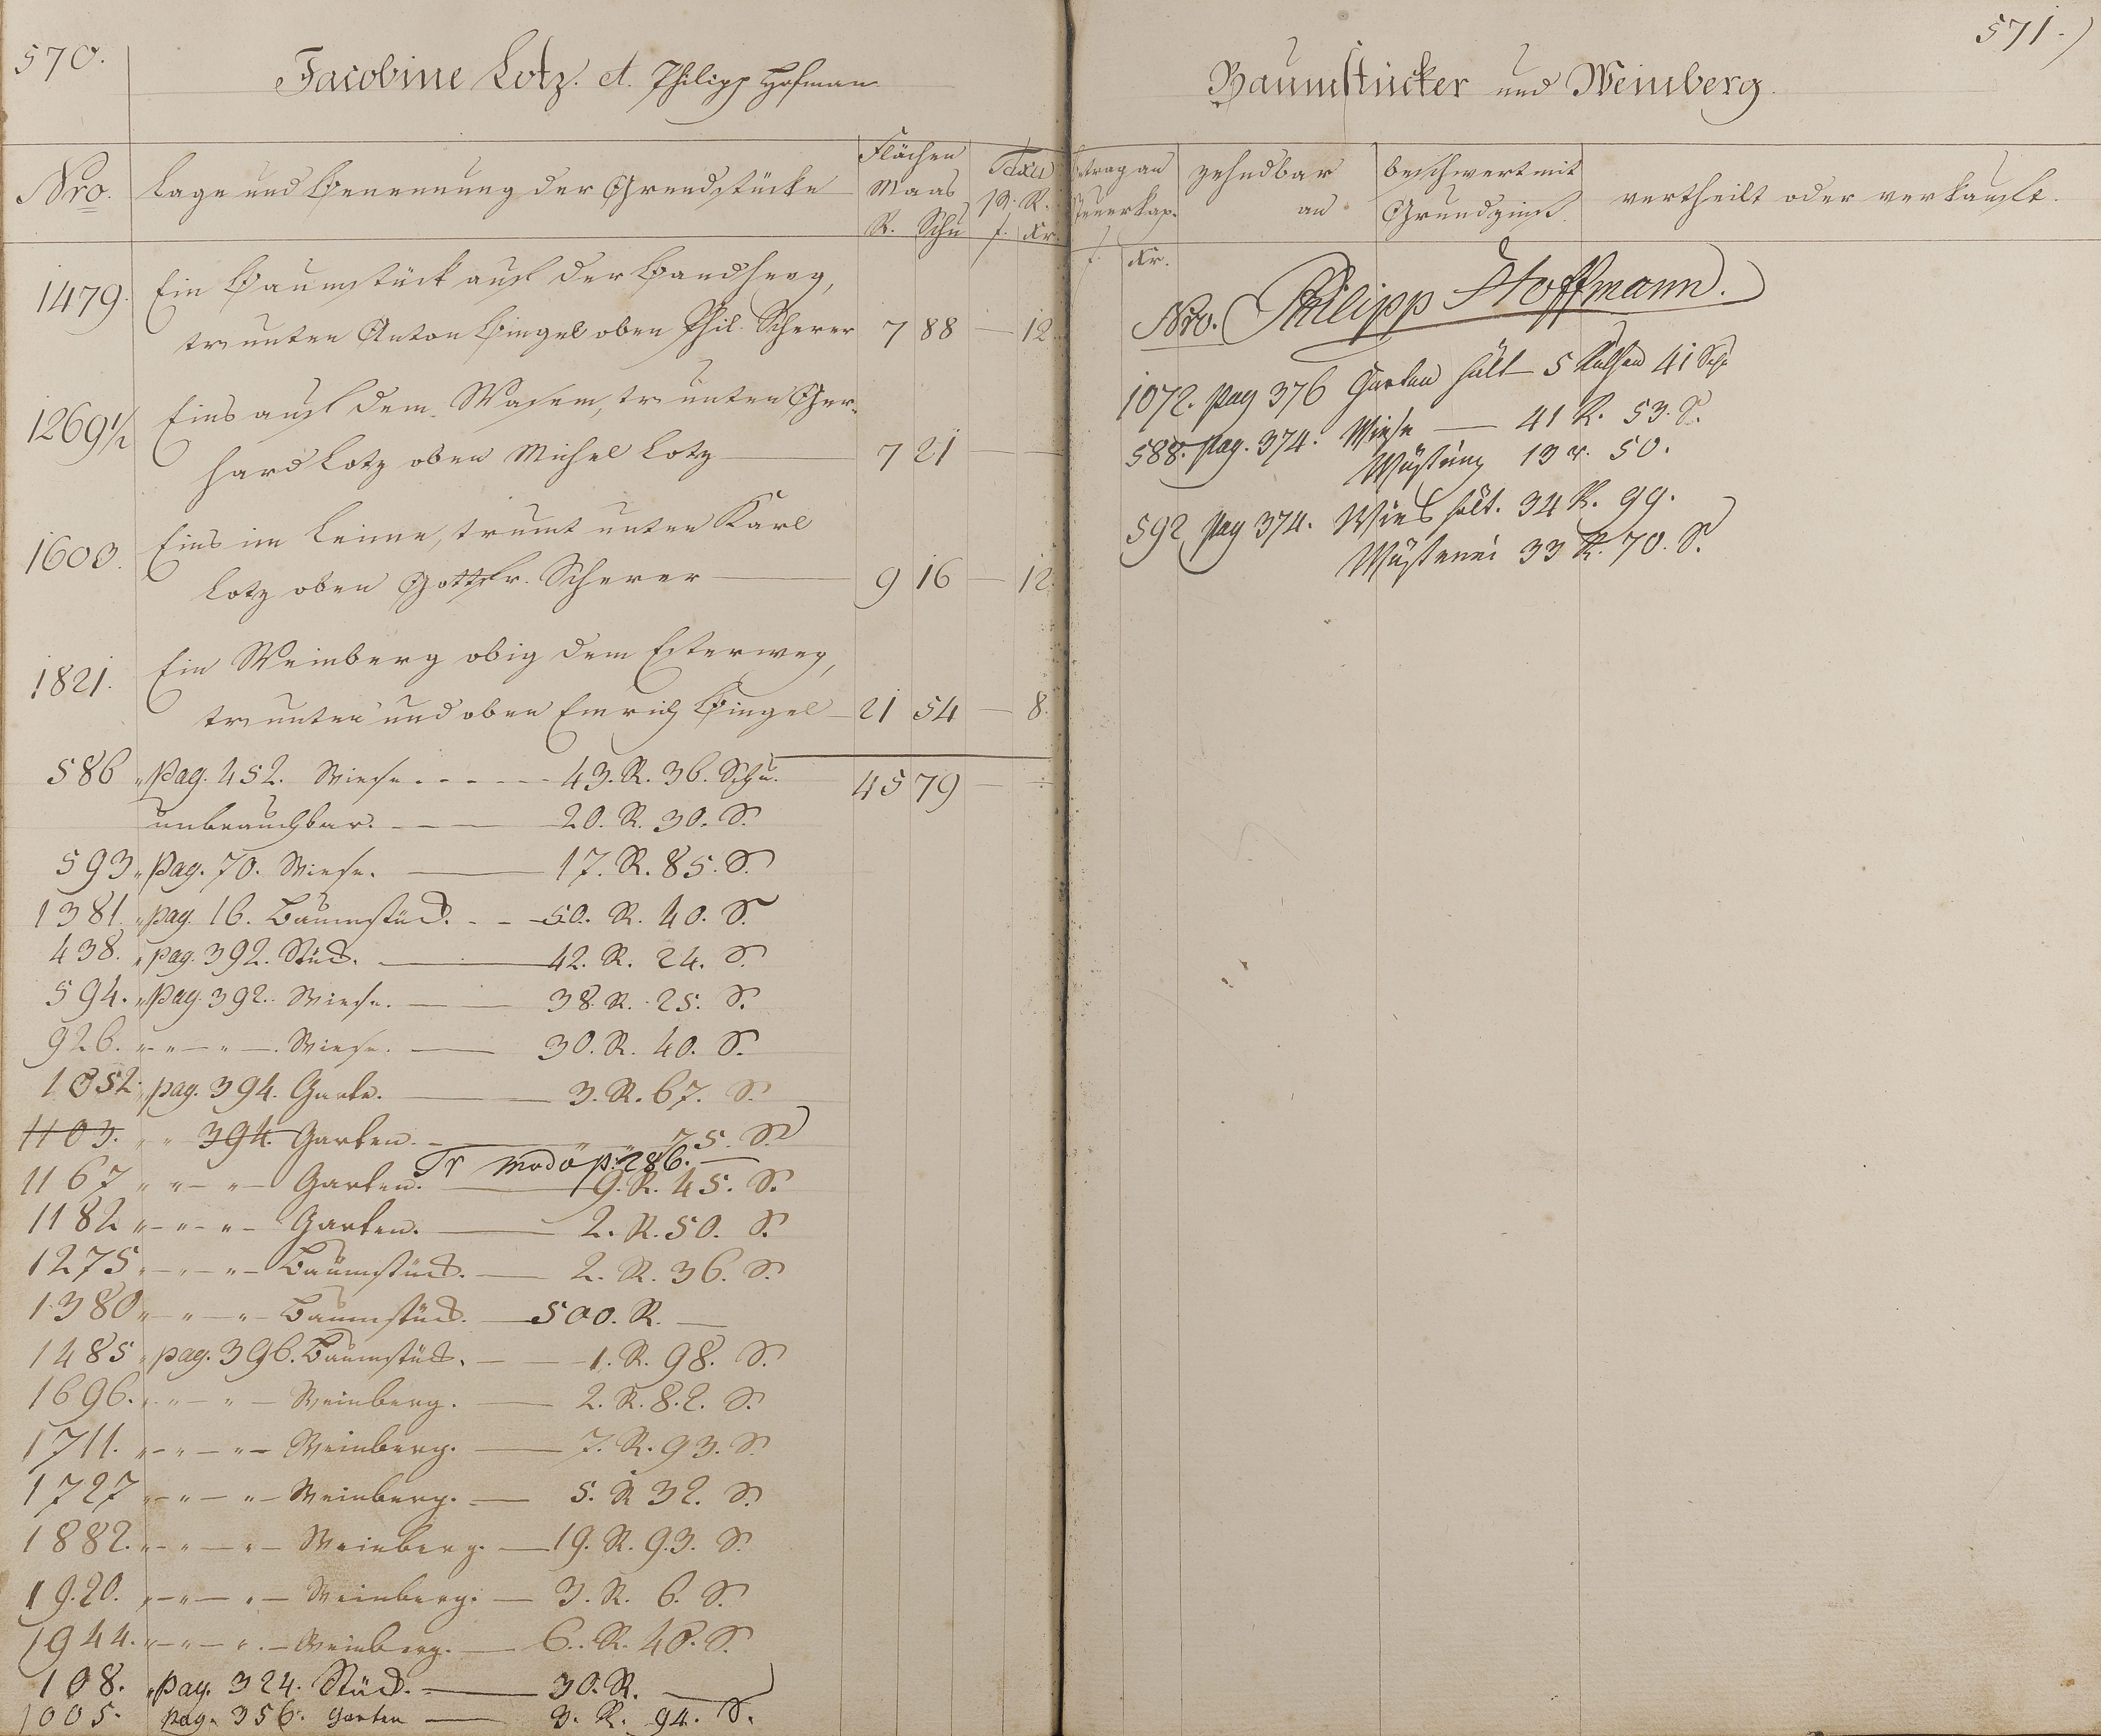 570.
Jacobine Lotz. et. Philipp Hofman
Nro.
Lage und Benennung der Grundstücke
Flächen
Maas
R. Schu
Taxa
p. R.
f. Kr.
1479.
Ein Baumstück auf der
tr unten Anton Bingel oben Phil. Scherer 7 88 — 12.
1269 1/2
Eins auf dem Wasem, tr unten Ger-
hard Lotz oben Michel Lotz — 7 21 — —
1603.
Eins im Leime, trumt unten Karl
Lotz oben Gottfr. Scherer — 9 16 — 12.
1821.
Ein Weinberg obig dem Esterweg,
tr unten und oben Emrich Bingel — 21 54 — 8.
45 79 — —
586 „ pag. 452. Wiese. - - - - - 43. R. 36. Schu.
unbrauchbar. — — 20. R. 30. S.
593 „ Pag. 70. Wiese. — 17. R. 85. S.
1381. „ pag. 16. Baumstück. - - 50. R. 40. S.
438. „ pag. 392. Stück. — 42. R. 24. S.
594. „ Pag. 392. Wiese. — 38. R. 25. S.
926. „ - „ — „ — Wiese. — 30. R. 40. S.
1052 „ pag. 394. Garte. — 3. R. 67. S.
1103. „ „ 394. Garten. — „ „ 75. S.
Tr modo p. 286. —
1167 „ „ — „ — Garten. — 19. R. 45. S.
1182 „ - „ - „ - Garten. — 2. R. 50. S.
1275 „ - „ - „ - Baumstück. — 2. R. 36. S.
1380 „ — „ — „ — Baumstück. — 500. R. —
1485 „ pag. 396. Baumstück. — — 1. R. 98. S.
1696. „ - „ — „ — Weinberg. — 2. R. 82. S.
1711. „ - „ — „ — Weinberg. — 7. R. 93. S.
1727 „ - „ — „ — Weinberg. — 5. R. 32. S.
1882. „ - „ — „ — Weinberg. — 19. R. 93. S.
1920. „ - „ — „ — Weinberg. — 3. R. 6. S.
1944. „ - „ — „ — Weinberg. — 6. R. 40. S.
108. „ Pag. 324. Stück. — 30. R. —
1005. pag. 356. Garten — 3. R. 94. S.
571.
Baumstücker und Weinberg.
Betrag an
Steuerkap.
f. Kr.
zehndbar
an
beschwert mit
Grundzinß.
vertheilt oder verkauft.
Nro. Philipp Hoffmann.
1072. pag 376 Garten hält — 5 Ruthen 41 Sch.
588. pag. 374. Wiese — 41 R. 53. S.
Wüstung 13 r. 50.
592 pag 374. Wies hält. 34 R. 99.
Wüstenei 33 R. 70. S.